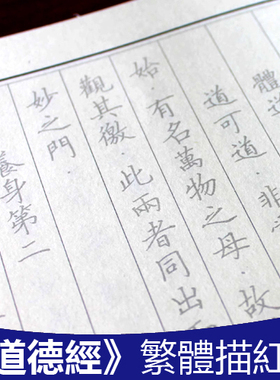 體道
道可道·非
始·有名萬物之母·故
觀其徼·此兩者同出
妙之門·
養身第二
道德經》繁體描紅